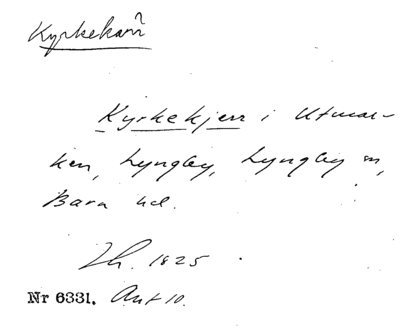 Kyrkekärr
Kyrkekjerr i Utmar-
ken, Lyngby, Lyngby sn,
Bara hd.
1825
Nr 6331. Ant 10.